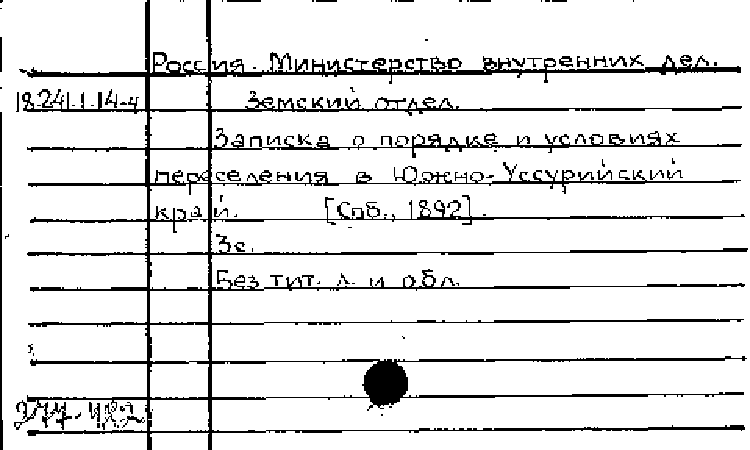 Россия. Министерство внутренних дел.
18.241.1.14-4 Земский отдел.
Записка о порядке и условиях
переселения в Южно-Уссурийский
край. [Спб., 1892].
3с.
Без тит. л. и обл.
277-482